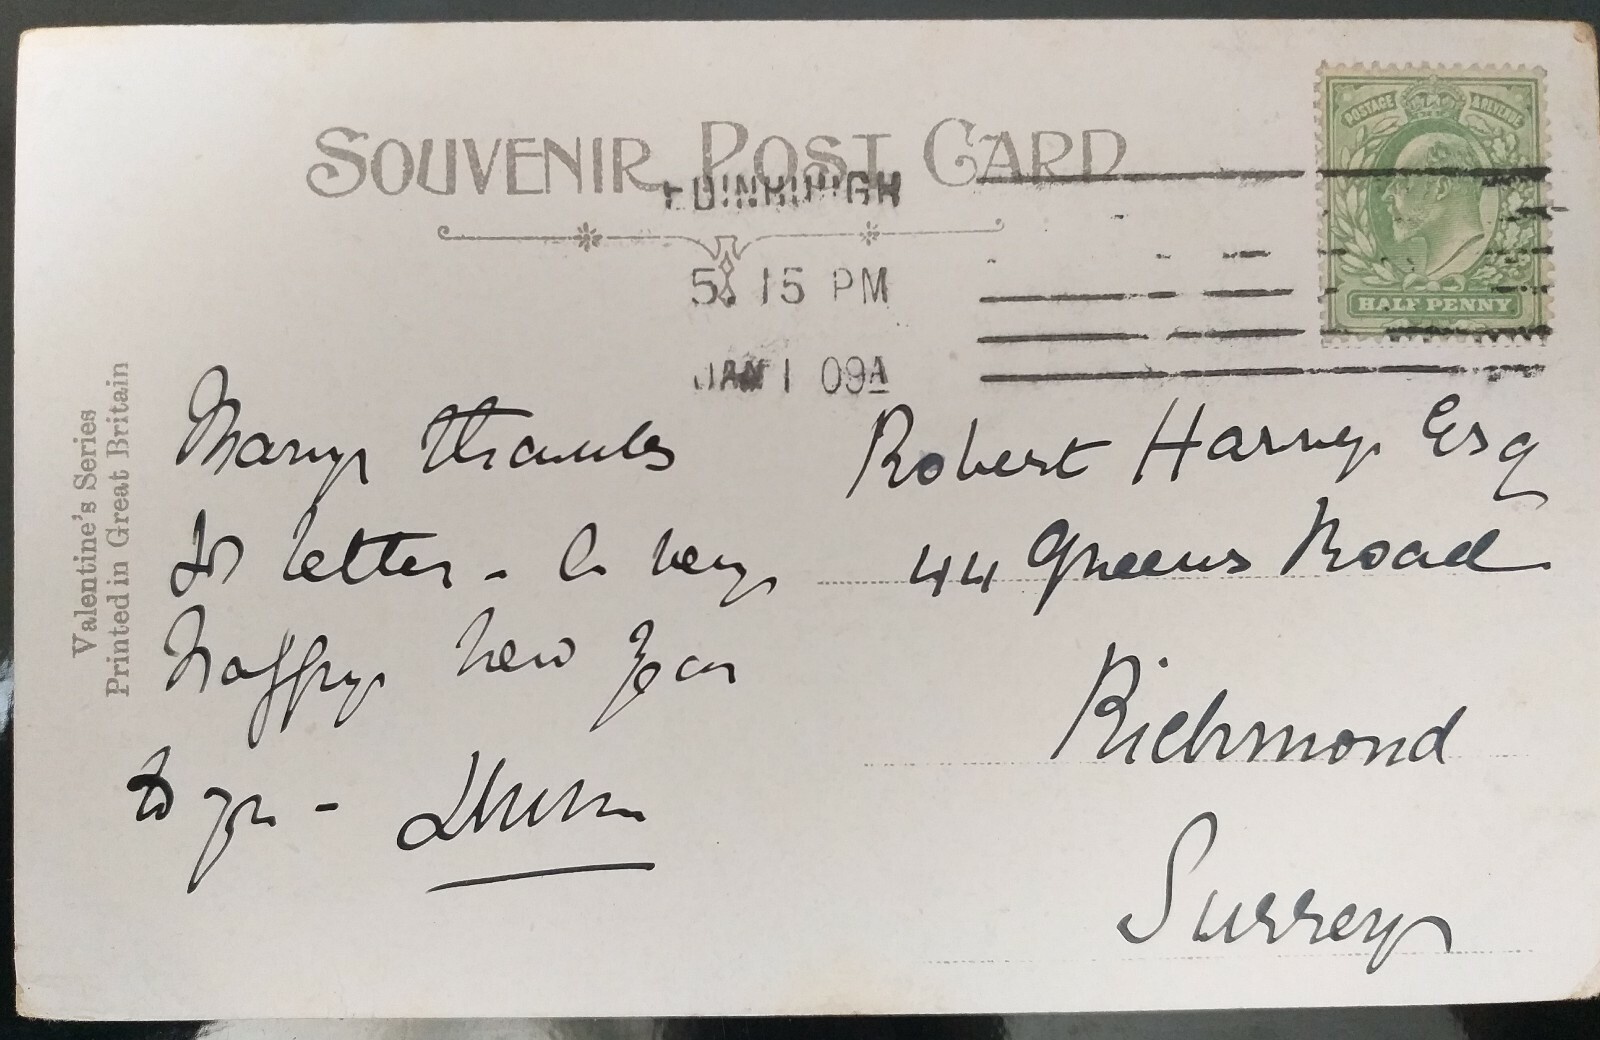 SOUVENIR POST CARD
EDINBURGH
5. 15 PM
JAN 1 09A
POSTAGE & REVENUE
HALF PENNY
Valentine's Series
Printed in Great Britain
Many thanks
for letter - A very
Happy New Year
to you -
Robert Harvey Esq
44 Queens Road
Richmond
Surrey